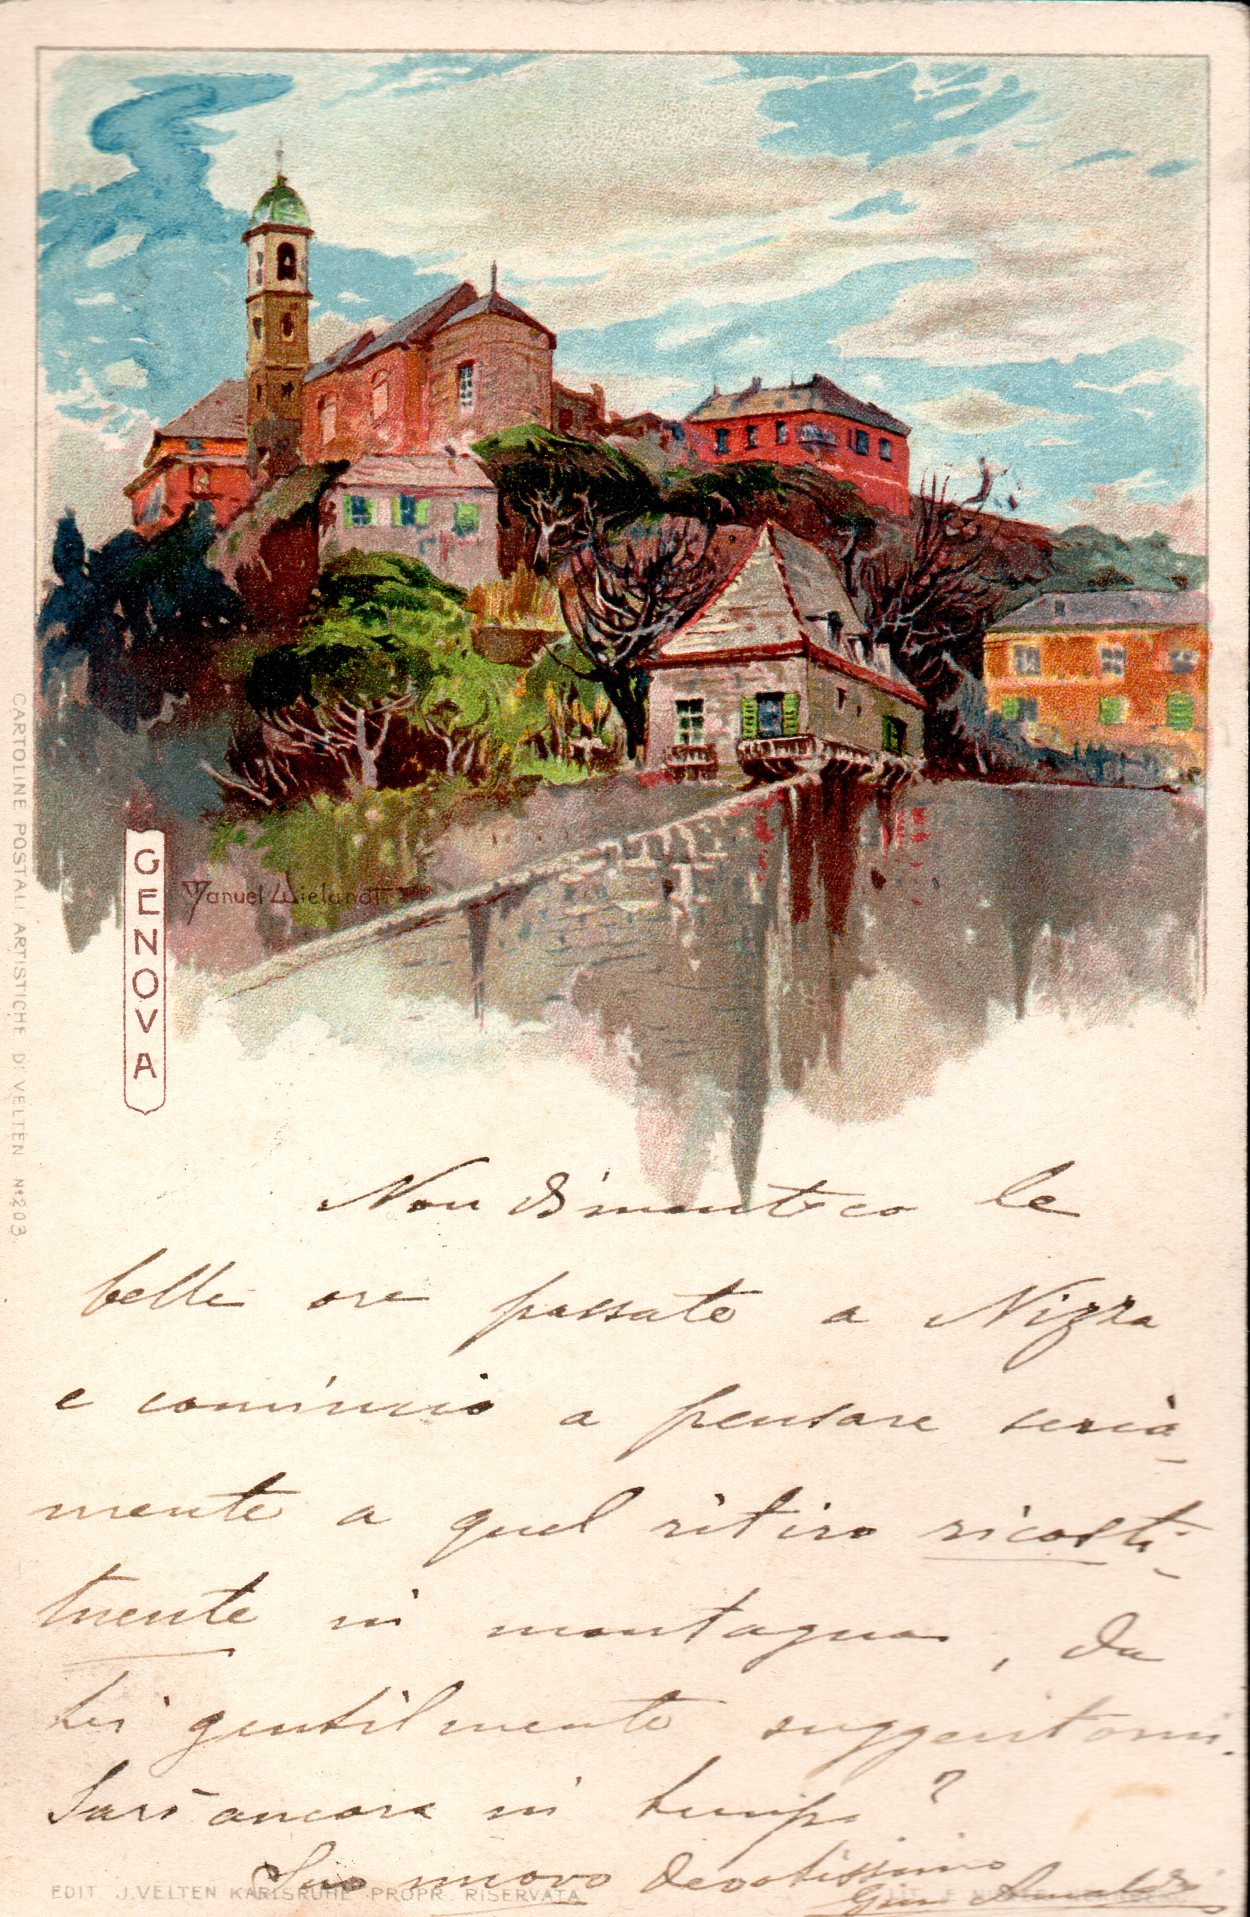 CARTOLINE POSTALI ARTISTICHE DI VELTEN Nº 203
GENOVA
Manuel Wielandt
Non dimentico le
belle ore passate a Nizza
e comincio a pensare seria-
mente a quel ritiro ricosti-
tuente in montagna, da
Lei gentilmente suggeritomi.
Sarò ancora in tempo?
Suo nuovo devotissimo
EDIT. J. VELTEN KARLSRUHE PROPR. RISERVATA